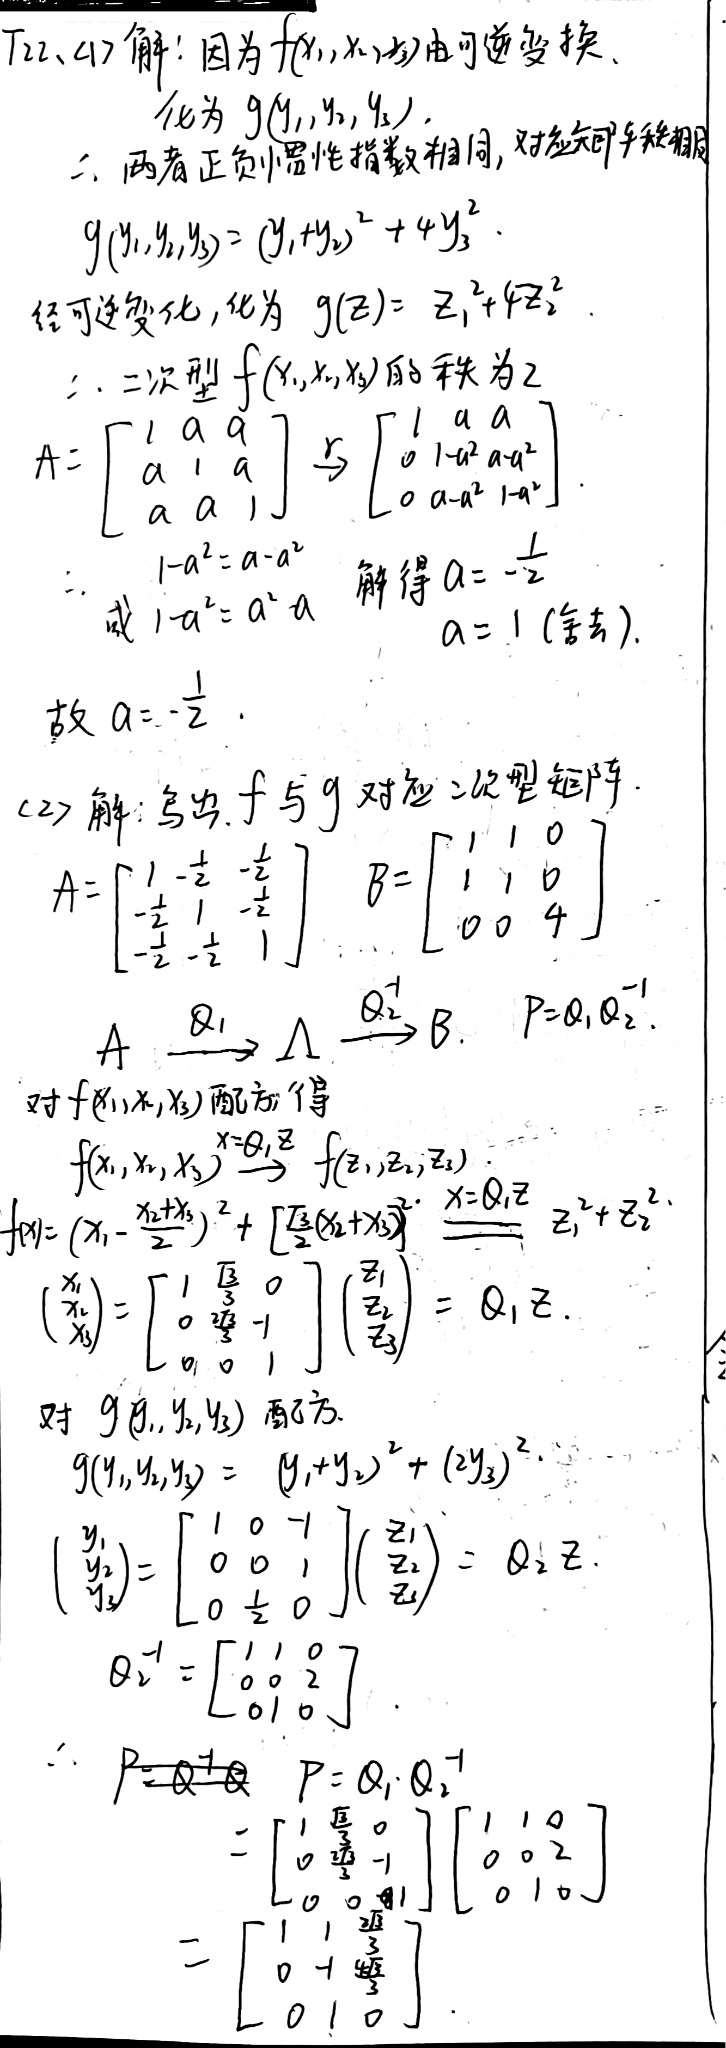 T22、(1) 解：因为 f(x₁,x₂,x₃)由可逆变换、
化为 g(y₁,y₂,y₃).
∴ 两者正负惯性指数相同，对应矩阵秩相同
g(y₁,y₂,y₃)=(y₁+y₂)²+4y₃².
经可逆变化，化为 g(z)= z₁²+4z₂².
∴ 二次型 f(x₁,x₂,x₃)的秩为2
A= [1 a a; a 1 a; a a 1] →r [1 a a; 0 1-a² a-a²; 0 a-a² 1-a²].
∴ 1-a²=a-a² 解得 a=-1/2
或 1-a²=a²-a a=1(舍去).
故 a=-1/2.
(2) 解：写出 f 与 g 对应二次型矩阵.
A= [1 -1/2 -1/2; -1/2 1 -1/2; -1/2 -1/2 1] B= [1 1 0; 1 1 0; 0 0 4]
A —Q₁→ Λ —Q₂⁻¹→ B. P=Q₁Q₂⁻¹.
对 f(x₁,x₂,x₃)配方得
f(x₁,x₂,x₃) —x=Q₁z→ f(z₁,z₂,z₃).
f(x)= (x₁-(x₂+x₃)/2)²+[√3/2(x₂+x₃)]² =x=Q₁z= z₁²+z₂².
(x₁; x₂; x₃)= [1 √3/3 0; 0 2√3/3 -1; 0 0 1] (z₁; z₂; z₃) = Q₁z.
对 g(y₁,y₂,y₃) 配方.
g(y₁,y₂,y₃) = (y₁+y₂)²+(2y₃)².
(y₁; y₂; y₃)= [1 0 -1; 0 0 1; 0 1/2 0] (z₁; z₂; z₃) = Q₂z.
Q₂⁻¹= [1 1 0; 0 0 2; 0 1 0].
∴ P=Q⁻¹Q P=Q₁·Q₂⁻¹
= [1 √3/3 0; 0 2√3/3 -1; 0 0 1] [1 1 0; 0 0 2; 0 1 0]
= [1 1 2√3/3; 0 -1 4√3/3; 0 1 0].